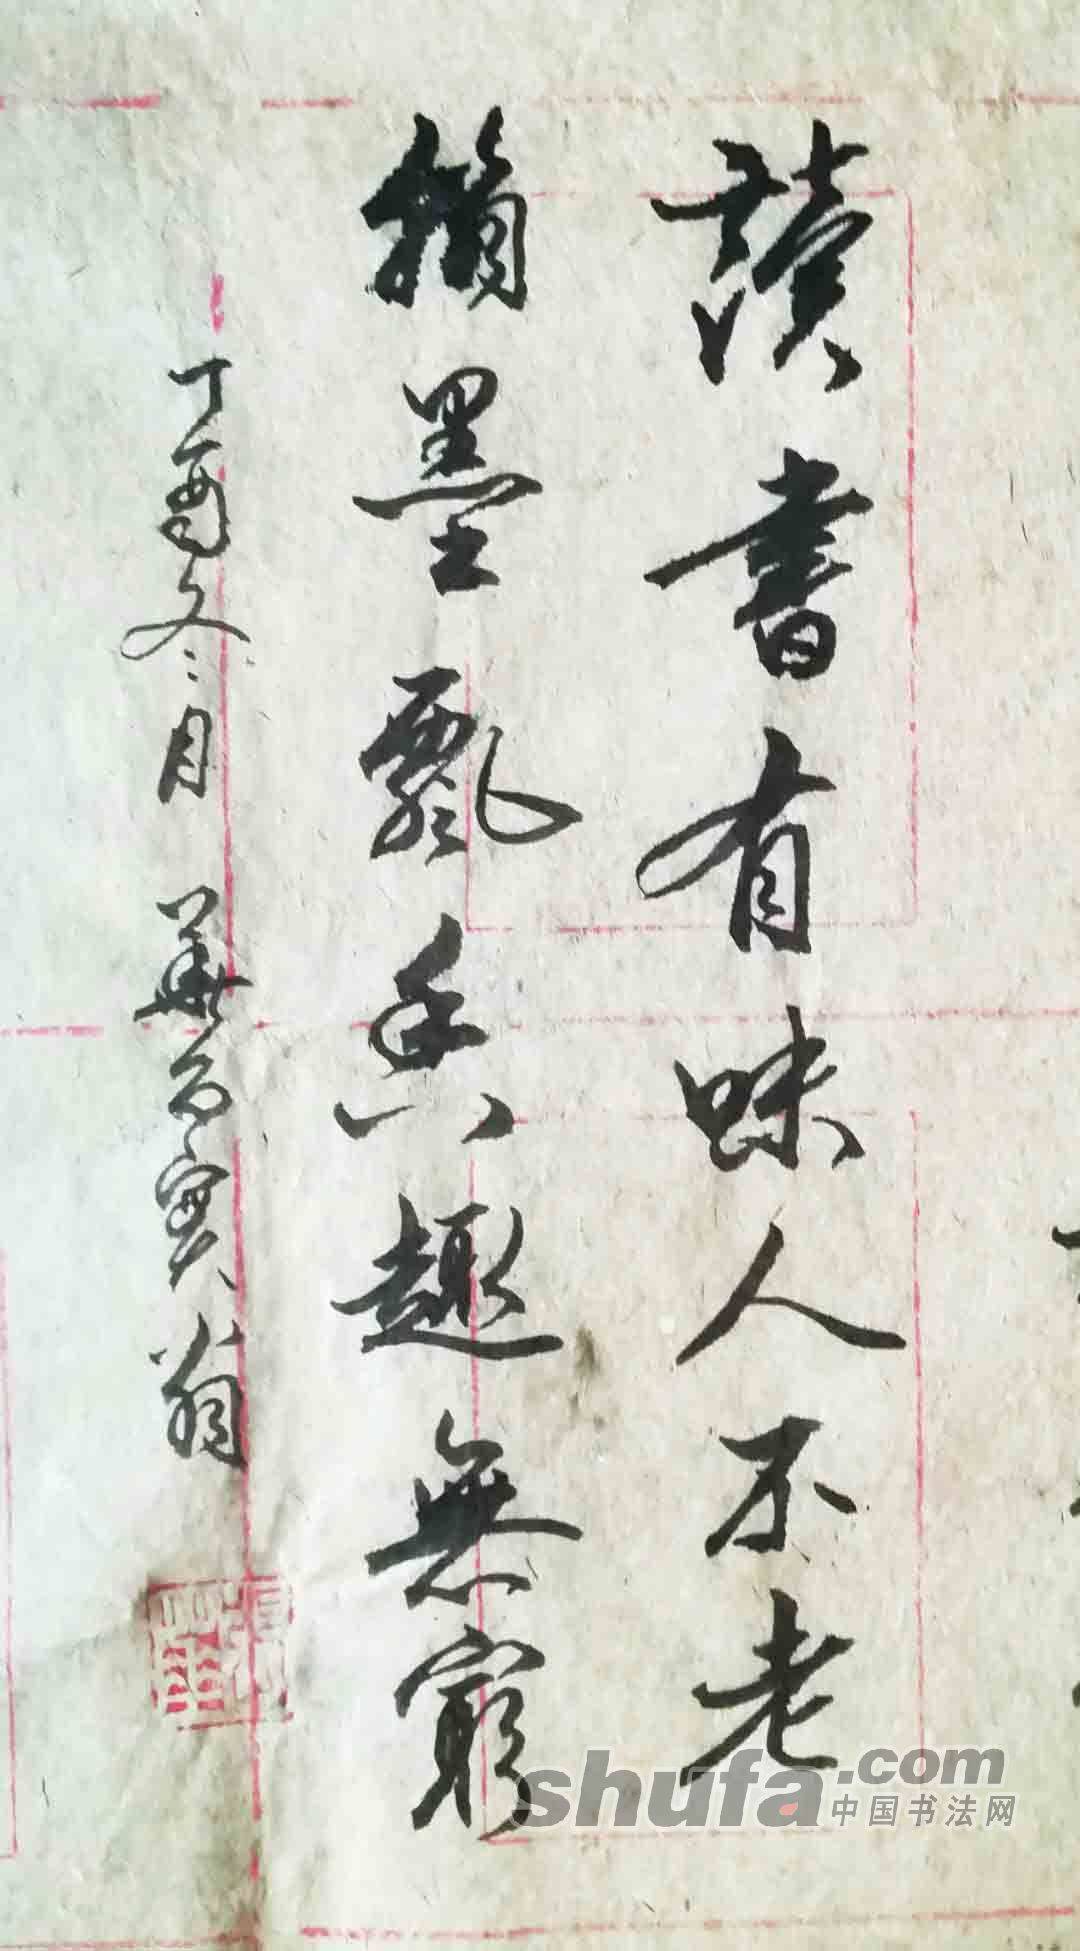 讀書有味人不老
翰墨飄香趣無窮
丁酉冬月 華 翁
shufa.com
中国书法网